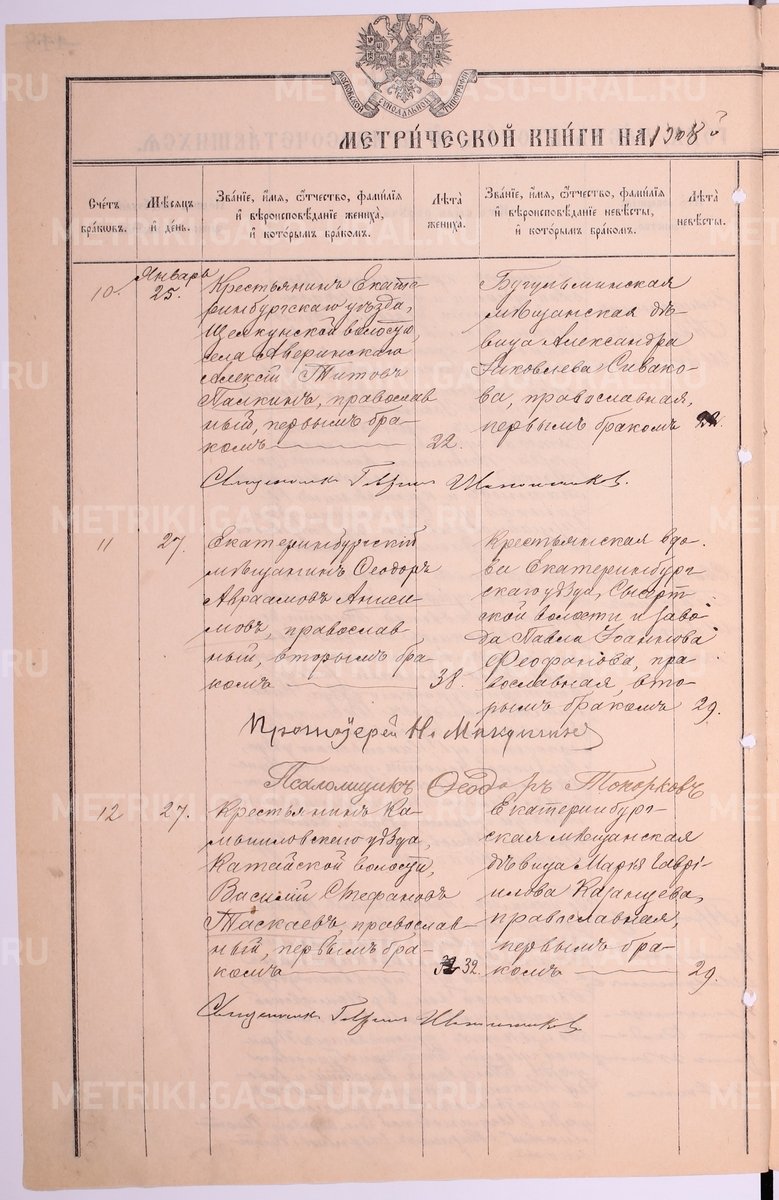 МОСКОВСКОЙ СѴНОДАЛЬНОЙ ТИПОГРАФІИ
МЕТРИ́ЧЕСКОЙ КНИ́ГИ НА 1908 й
Сче́тъ бра́кѡвъ.
Мѣ́сѧцъ и҆ де́нь.
Зва́нїе, и҆́мѧ, ѻ҆́тчество, фами́лїѧ
и҆ вѣроисповѣ́данїе жениха̀,
и҆ кото́рымъ бра́комъ.
Лѣ́та жениха̀.
Зва́нїе, и҆́мѧ, ѻ҆́тчество, фами́лїѧ
и҆ вѣроисповѣ́данїе невѣ́сты,
и҆ кото́рымъ бра́комъ.
Лѣ́та невѣ́сты.
10.
Январь
25.
Крестьянинъ Екате-
ринбургскаго уѣзда,
Щелкунской волости,
села Аверинскаго
Алексій Титовъ
Палкинъ, православ
ный, первымъ бра-
комъ
22.
Бугульминская
мѣщанская дѣ-
вица Александра
Яковлева Сивако-
ва, православная,
первымъ бракомъ
22.
Священникъ
11
27.
Екатеринбургскій
мѣщанинъ Ѳеодоръ
Авраамовъ Аниси-
мовъ, православ
ный, вторымъ бра-
комъ
38.
Крестьянская вдо-
ва Екатеринбург
скаго уѣзда, Сысерт
ской волости и заво-
да Павла Іоаннова
Ѳеофанова, пра-
вославная, вто-
рымъ бракомъ
29.
Протоіерей Н. Микушинъ
Псаломщикъ Ѳеодоръ Топорковъ
12
27.
Крестьянинъ Ка-
мышловскаго уѣзда,
Катайской волости,
Василій Стефановъ
Таскаевъ, православ-
ный, первымъ бра-
комъ
32.
Екатеринбург-
ская мѣщанская
дѣвица Марія Гаврі-
илова Казанцева,
православная,
первымъ бра-
комъ
29.
Священникъ
METRIKI.GASO-URAL.RU